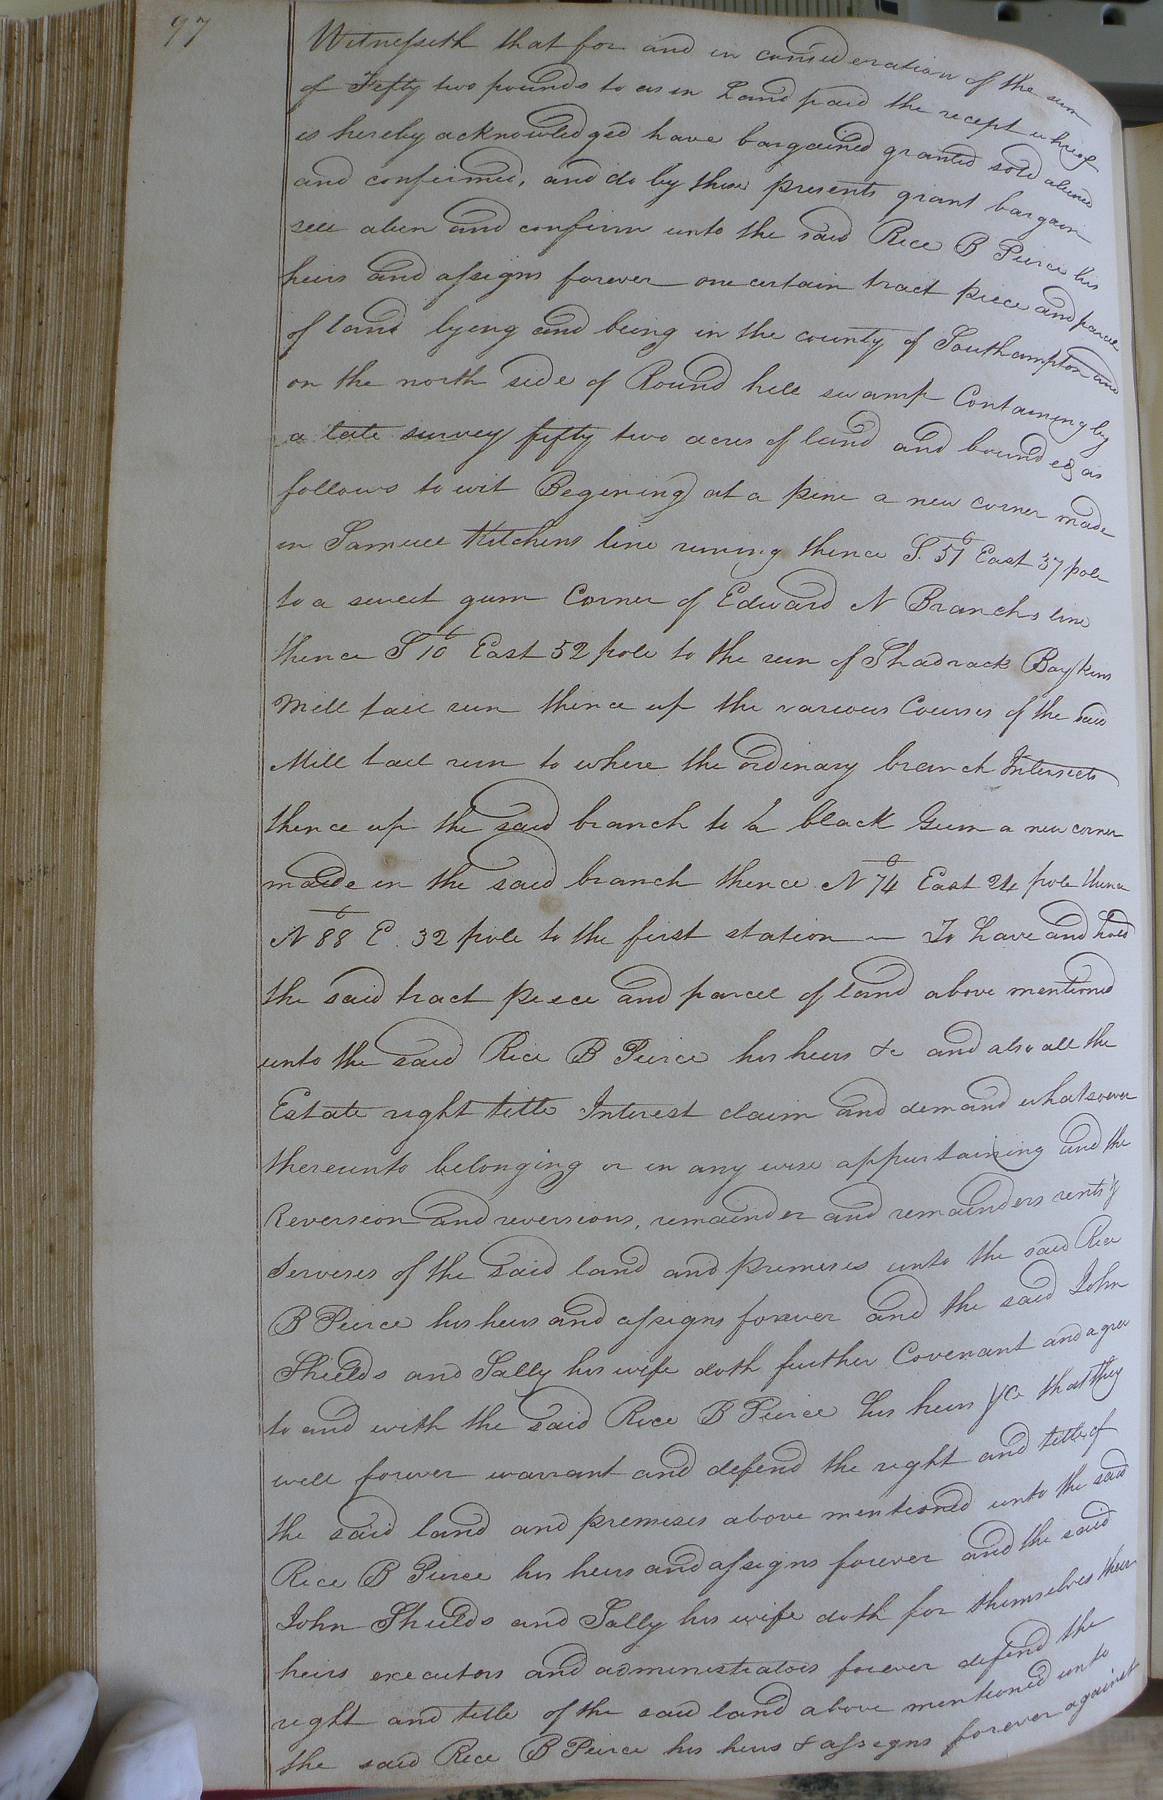 97
Witnesseth that for and in consideration of the sum
of Fifty two pounds to us in Hand paid the recept whreof
is hereby acknowledged have bargained granted sold aliened
and confirmed, and do by these presents grant bargain
sell alien and confirm unto the said Rice B Peirce his
heirs and assigns forever one certain tract piece and parcel
of land lyeing and being in the county of Southampton and
on the north side of Round hill swamp Containing by
a late survey fifty two acres of land and bounded as
follows to wit Begining at a pine a new corner made
in Samuel Kitchens line runing thence S. 51° East 37 pole
to a sweet gum Corner of Edward N Branchs line
thence S 10° East 52 pole to the run of Shadrack Baykins
Mill tail run thence up the various Courses of the said
Mill tail run to where the ordinary branch Intersects
thence up the said branch to a black Gum a new corner
made in the said branch thence N 74° East 24 pole thence
N 88° E. 32 pole to the first station — To have and hold
the said tract peice and parcel of land above mentioned
unto the said Rice B Peirce his heirs &c and also all the
Estate right title Interest claim and demand whatsoever
thereunto belonging or in any wise appurtaining and the
Reversion and reversions, remainder and remainders rents &
Serveses of the said land and premeses unto the said Rice
B Peirce his heirs and assigns forever and the said John
Shields and Sally his wife doth further Covenant and agree
to and with the said Rice B Peirce his heirs &c that they
will forever warrant and defend the right and title of
the said land and premises above mentioned unto the said
Rice B Peirce his heirs and assigns forever and the said
John Shields and Sally his wife doth for themselves their
heirs executors and administrators forever defend the
right and title of the said land above mentioned unto
the said Rice B Peirce his heirs & assigns forever against